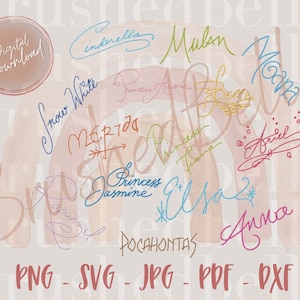 Digital
Download
Cinderella
Mulan
Moana
Snow White
Princess Aurora
Merida
Princess
Tiana
Ariel
Princess
Jasmine
Elsa
Anna
POCAHONTAS
PNG - SVG - JPG - PDF - DXF